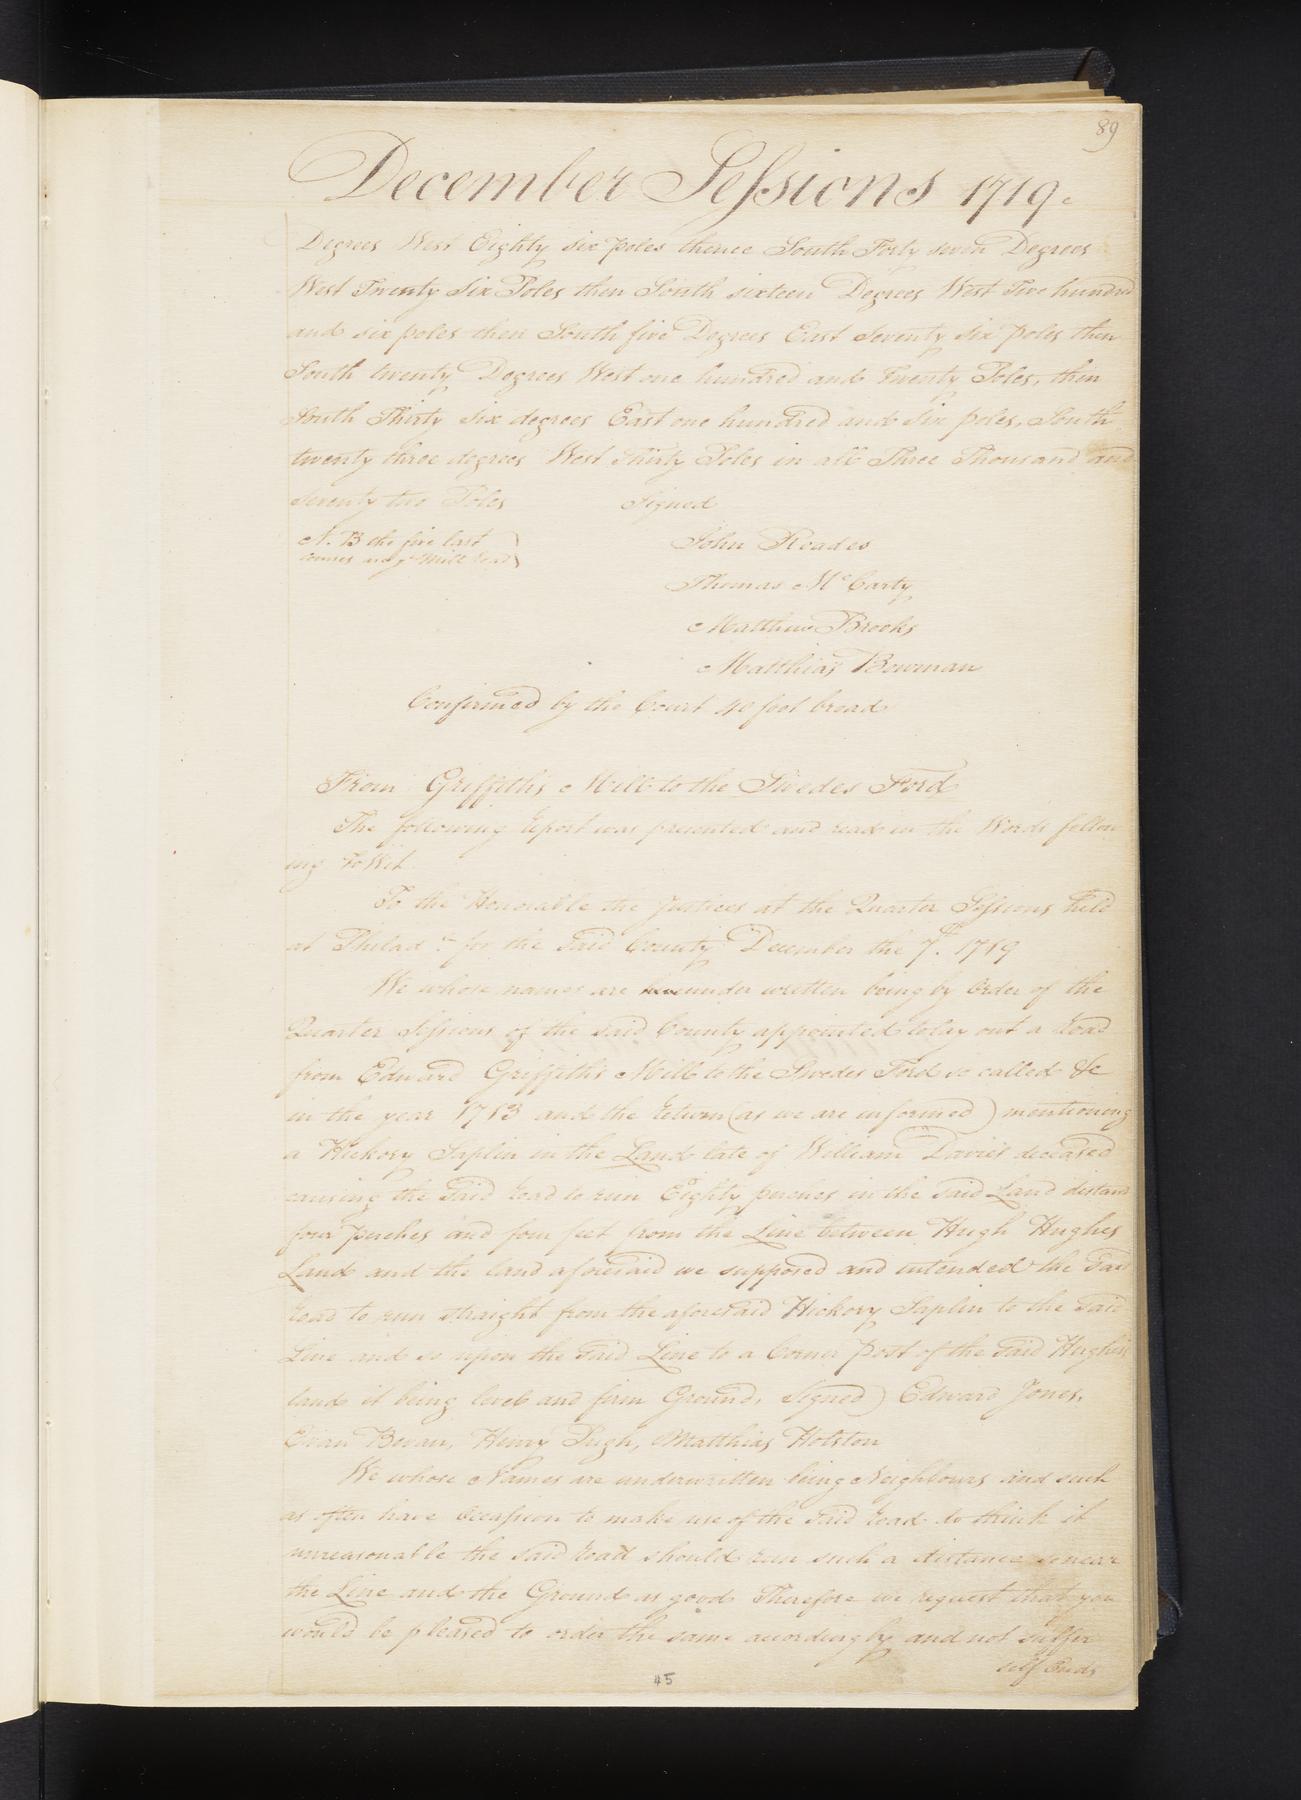 89
December Sessions 1719.
Degrees West Eighty six poles thence South Forty seven Degrees
West Twenty Six Poles then South sixteen Degrees West Five hundred
and six poles then South five Degrees East Seventy six poles then
South twenty Degrees West one hundred and Twenty Poles, then
South Thirty Six degrees East one hundred and Six poles, South
twenty three degrees West Thirty Poles in all Three Thousand and
Seventy two Poles Signed
N. B the five last
courses are ye Mill road
John Roades
Thomas McCarty
Matthew Brooks
Matthias Bowman
Confirmed by the Court 40 foot broad
From Griffith's Mill to the Swedes Ford
The following Report was presented and read in the Words follow
ing to Wit
To the Honorable the Justices at the Quarter Sessions held
at Philada for the Said County December the 7th. 1719
We whose names are hereunder written being by Order of the
Quarter Sessions of the said County appointed to lay out a Road
from Edward Griffith's Mill to the Swedes Ford so called &c
in the year 1713 and the return (as we are informed) mentioning
a Hickory Saplin in the Land late of William Davies deceased
causing the Said road to run Eighty perches in the Said Land distant
four perches and four feet from the Line between Hugh Hughes
Land and the land aforesaid we supposed and intended the Said
Road to run straight from the aforesaid Hickory Saplin to the Said
Line and so upon the Said Line to a Corner post of the Said Hughes
land it being level and firm Ground, Signed) Edward Jones,
Evan Bevan, Henry Pugh, Matthias Holston
We whose Names are underwritten being Neighbours and such
as often have Occassion to make use of the Said road do think it
unreasonable the said road should run such a distance so near
the Line and the Ground as good Therefore we request that you
would be pleased to order the same accordingly and not suffer
self Ends
45